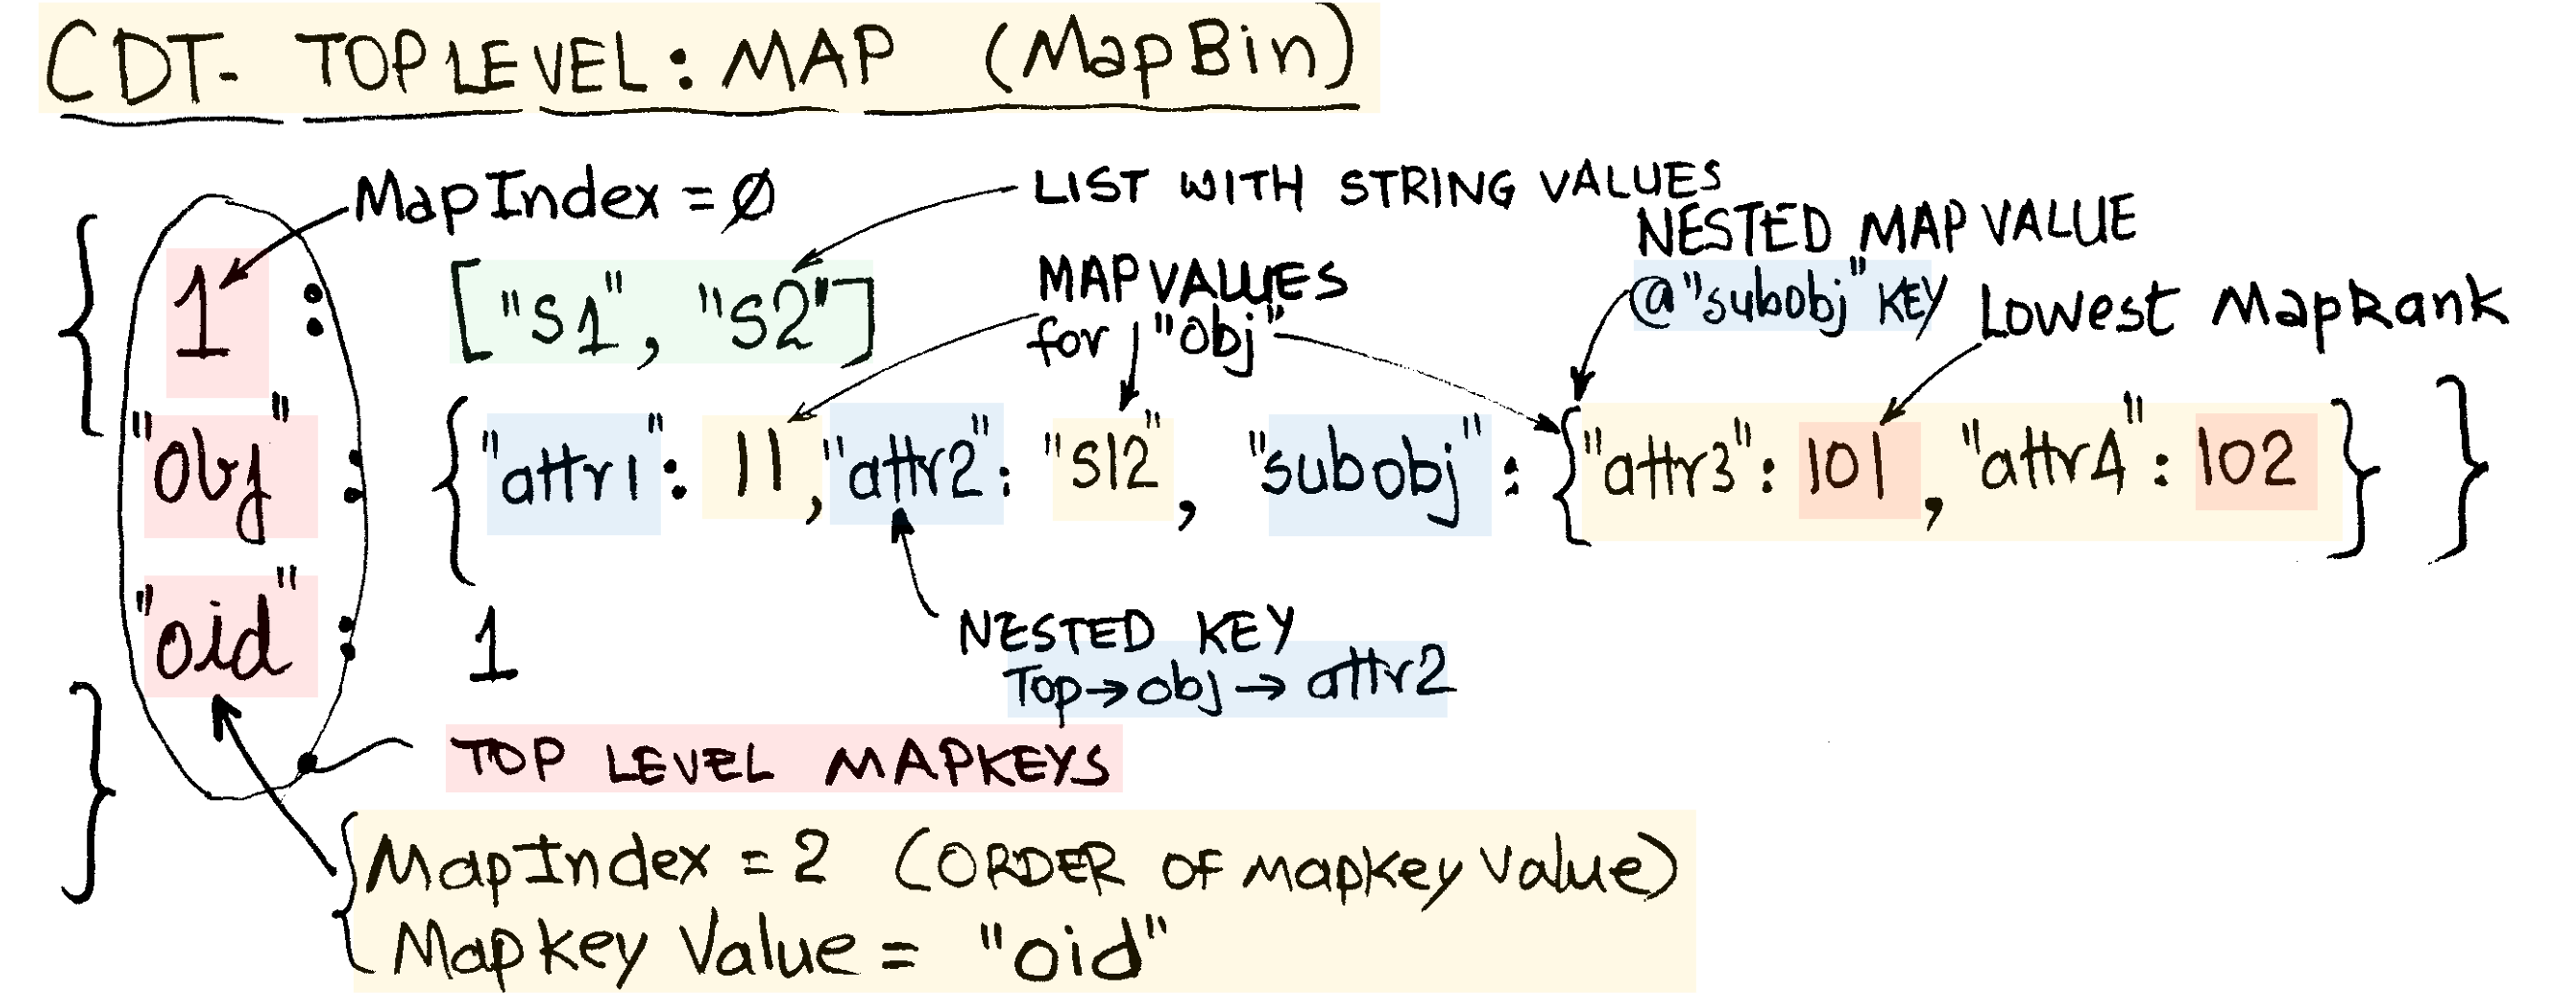 CDT- TOP LEVEL: MAP (MapBin)
MapIndex = Ø
LIST WITH STRING VALUES
NESTED MAP VALUE
@"subobj" KEY
MAP VALUES
for "obj"
Lowest MapRank
{ 1 : ["S1", "S2"]
"obj" : {"attr1": 11, "attr2": "S12", "subobj": {"attr3": 101, "attr4": 102}}
"oid" : 1
}
NESTED KEY
Top→obj→attr2
TOP LEVEL MAPKEYS
{ MapIndex = 2 (ORDER OF mapkey value)
Mapkey Value = "oid"